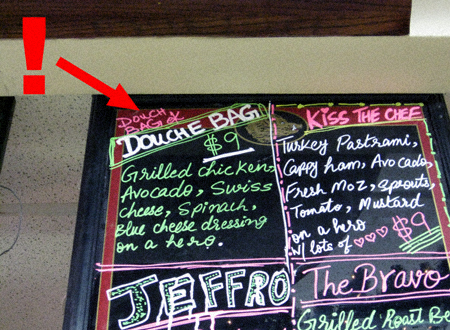 !
DOUCH
BAG
DOUCHE BAG
$9
Grilled chicken,
Avocado, Swiss
cheese, Spinach,
Blue cheese dressing
on a hero.
JEFFRO
KISS THE CHEF
Turkey Pastrami,
Cappy ham, Avocado,
Fresh Moz, sprouts,
Tomato, Mustard
on a hero
w/ lots of ♡♡♡ $9
The Bravo
Grilled Roast Be